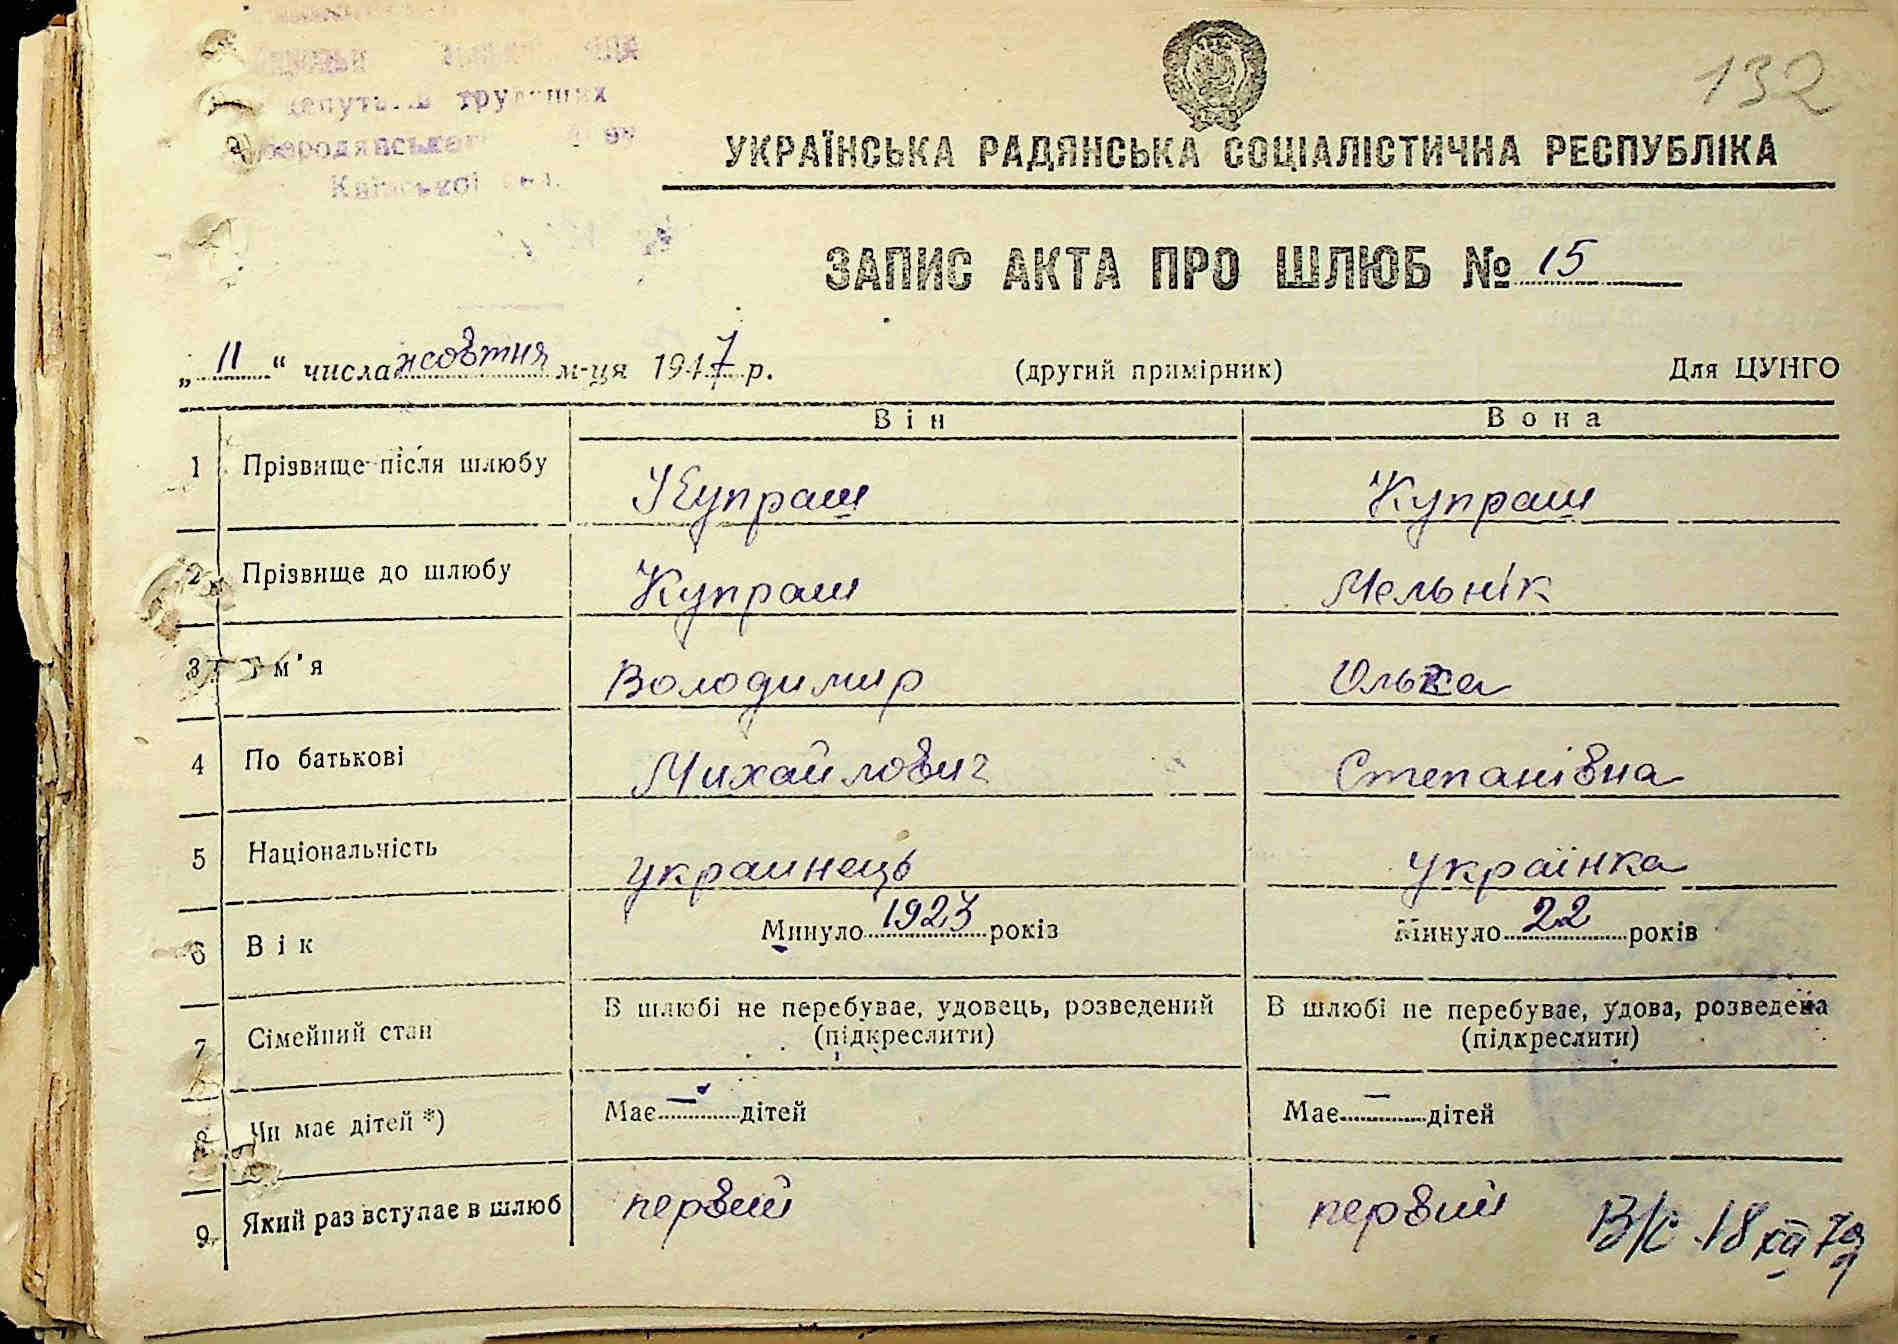 депутатів трудящих
Бородянського
Київської обл.
132
УКРАЇНСЬКА РАДЯНСЬКА СОЦІАЛІСТИЧНА РЕСПУБЛІКА
ЗАПИС АКТА ПРО ШЛЮБ № 15
„ 11 “ числа жовтня м-ця 1947 р. (другий примірник) Для ЦУНГО
Він Вона
1 Прізвище після шлюбу Купраш Купраш
2 Прізвище до шлюбу Купраш Мельнік
3 Ім'я Володимир Ольга
4 По батькові Михайлович Степанівна
5 Національність украинець українка
6 Вік Минуло 1923 років Минуло 22 років
7 Сімейний стан В шлюбі не перебуває, удовець, розведений (підкреслити) В шлюбі не перебуває, удова, розведена (підкреслити)
8 Чи має дітей *) Має — дітей Має — дітей
9 Який раз вступає в шлюб первий первий
В/с 18 XII